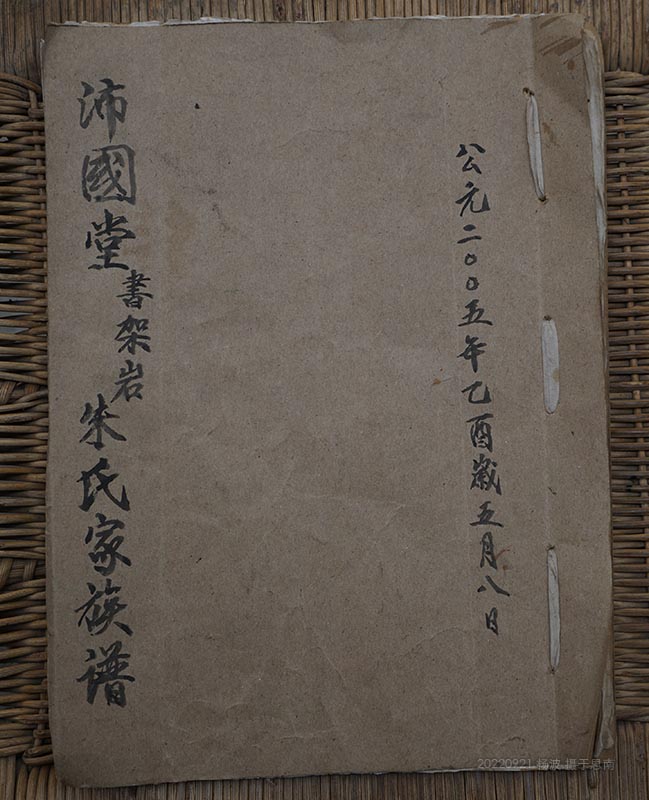 公元二00五年乙酉歲五月八日
沛國堂書架岩朱氏家族谱
20220921 杨波 摄于思南